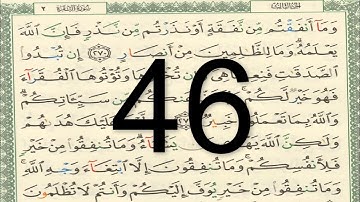 سورة البقرة
وَمَآ أَنفَقْتُم مِّن نَّفَقَةٍ أَوْ نَذَرْتُم مِّن نَّذْرٍ فَإِنَّ ٱللَّهَ
يَعْلَمُهُۥ وَمَا لِلظَّٰلِمِينَ مِنْ أَنصَارٍ ٢٧٠ إِن تُبْدُوا۟
ٱلصَّدَقَٰتِ فَنِعِمَّا هِىَ وَتُؤْتُوهَا ٱلْفُقَرَآءَ
46
فَهُوَ خَيْرٌ لَّكُمْ مِّن سَيِّـَٔاتِكُمْ
وَٱللَّهُ بِمَا تَعْمَلُونَ خَبِيرٌ عَلَيْكَ هُدَىٰهُمْ
وَلَٰكِنَّ ٱللَّهَ يَهْدِى
فَلِأَنفُسِكُمْ وَمَا تُنفِقُونَ إِلَّا ٱبْتِغَآءَ وَجْهِ ٱللَّهِ
وَمَا تُنفِقُوا۟ مِنْ خَيْرٍ يُوَفَّ إِلَيْكُمْ وَأَنتُمْ لَا تُظْلَمُونَ